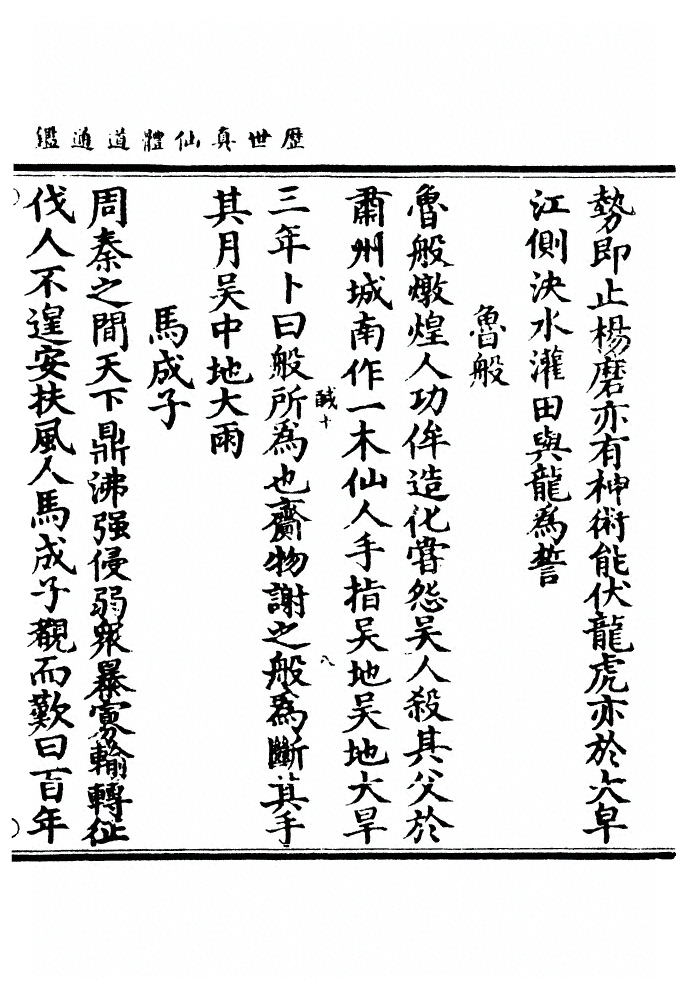 歷世真仙體道通鑑
勢即止楊磨亦有神術能伏龍虎亦於大皁
江側決水灌田與龍為誓
魯般
魯般燉煌人功侔造化嘗怨吳人殺其父於
肅州城南作一木仙人手指吳地吳地大旱
諴十
八
三年卜曰般所為也齎物謝之般為斷其手
其月吳中地大雨
馬成子
周秦之間天下鼎沸强侵弱衆暴寡輸轉征
伐人不遑安扶風人馬成子覩而歎曰百年